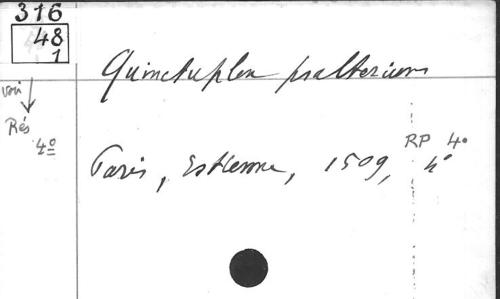 316
48
1
Quinctuplex psalterium
voir
Rés
4º
RP 4º
Paris, Estienne, 1509, 4º